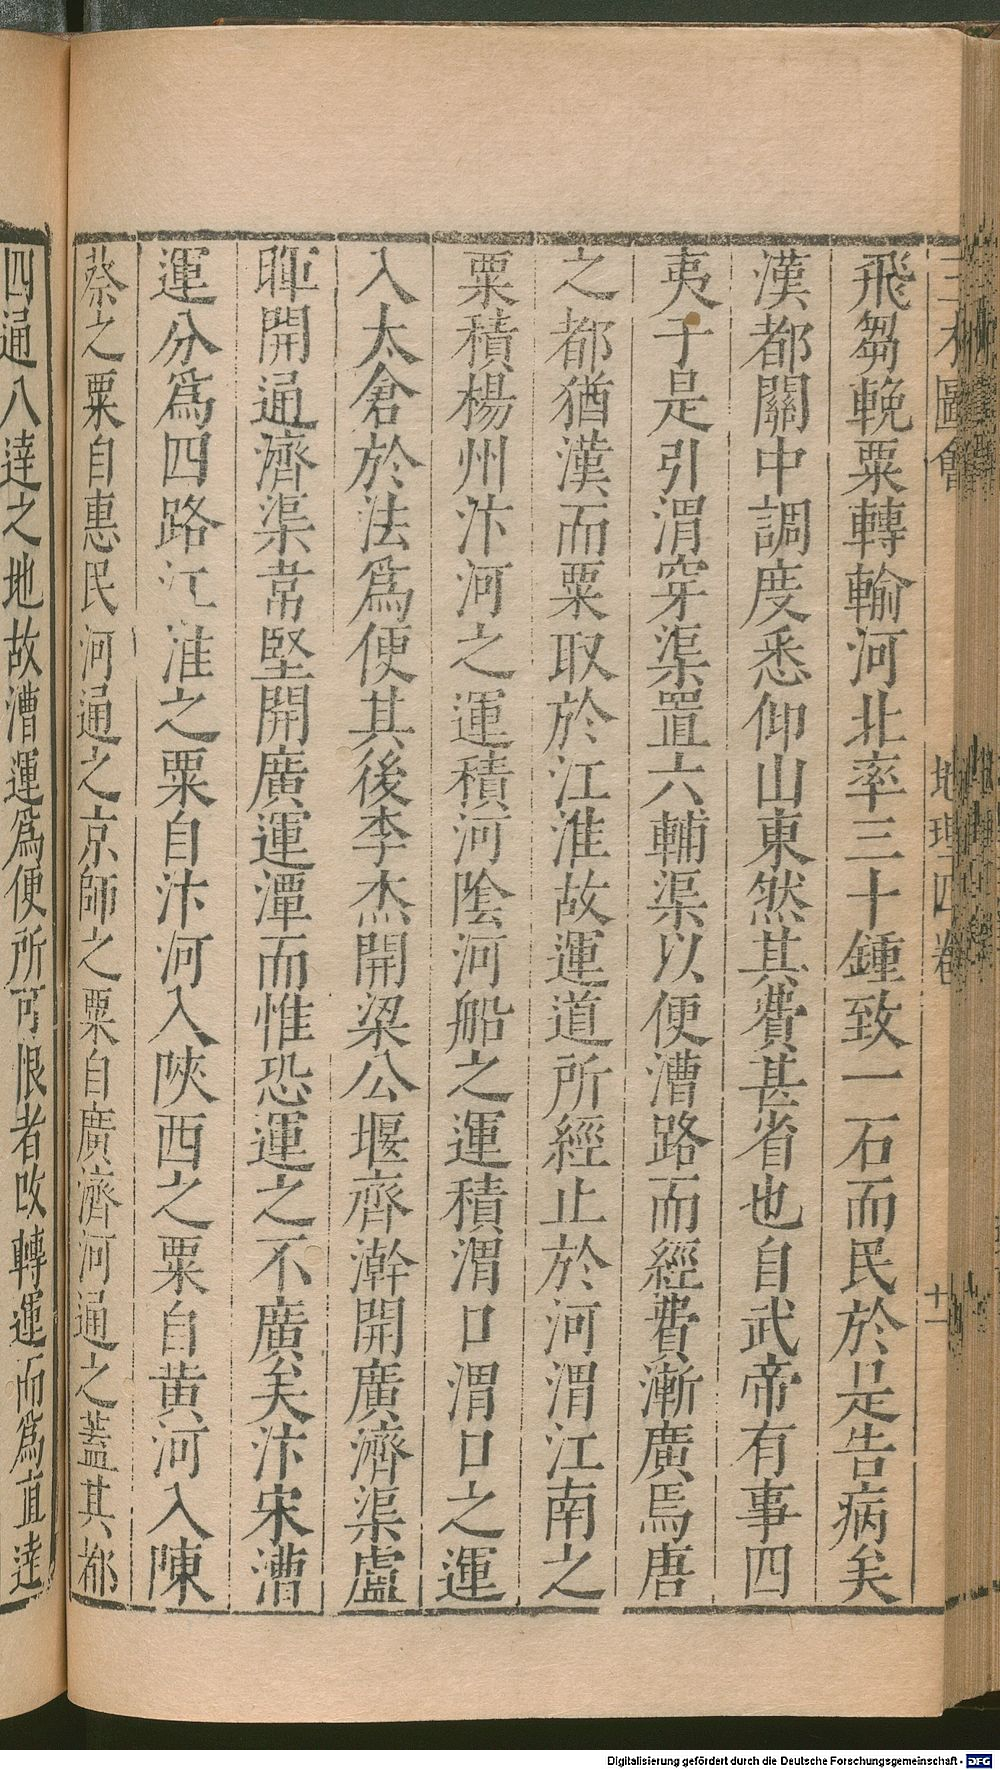 三才圖會 地理四卷 十一
飛芻輓粟轉輸河北率三十鍾致一石而民於是告病矣
漢都關中調度悉仰山東然其費甚省也自武帝有事四
夷于是引渭穿渠置六輔渠以便漕路而經費漸廣焉唐
之都猶漢而粟取於江淮故運道所經止於河渭江南之
粟積楊州汴河之運積河陰河船之運積渭口渭口之運
入太倉於法爲便其後李杰開梁公堰齊澣開廣濟渠盧
暉開通濟渠韋堅開廣運潭而惟恐運之不廣矣汴宋漕
運分爲四路江淮之粟自汴河入陝西之粟自黃河入陳
蔡之粟自惠民河通之京師之粟自廣濟河通之蓋其都
四通八達之地故漕運爲便所可恨者改轉運而爲直達
Digitalisierung gefördert durch die Deutsche Forschungsgemeinschaft - DFG